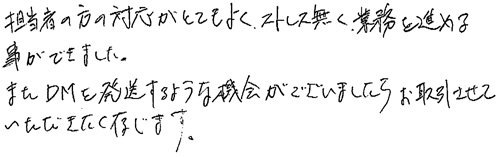 担当者の方の対応がとてもよく、ストレス無く、業務を進める
事ができました。
またDMを発送するような機会がございましたらお取引させて
いただきたく存じます。